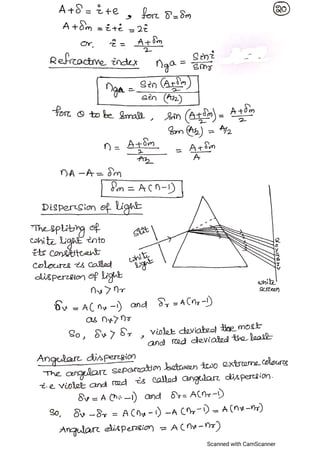 20
A+δ = i+e , for δ=δm
A+δm = i+i = 2i
or. i = A+δm / 2
Refractive index nga = Sini / Sinr
ngA = Sin (A+δm / 2) / Sin (A/2)
for θ to be small, sin (A+δm / 2) = A+δm / 2
Sin (A/2) = A/2
n = A+δm / 2 / A/2 = A+δm / A
nA - A = δm
δm = A(n-1)
Dispersion of light
The spliting of
white light into
its constituent
colours is called
dispersion of light
slit
white
light
R
O
Y
G
B
I
V
white
screen
nv > nr
δv = A(nv -1) and δr = A(nr -1)
as nv > nr
So, δv > δr , violet deviated the most
and red deviated the least
Angular dispersion
The angular separation between two extreme colours
i.e violet and red is called angular dispersion.
δv = A (nv -1) and δr = A(nr -1)
So, δv - δr = A(nv -1) - A(nr -1) = A(nv - nr)
Angular dispersion = A(nv - nr)
Scanned with CamScanner